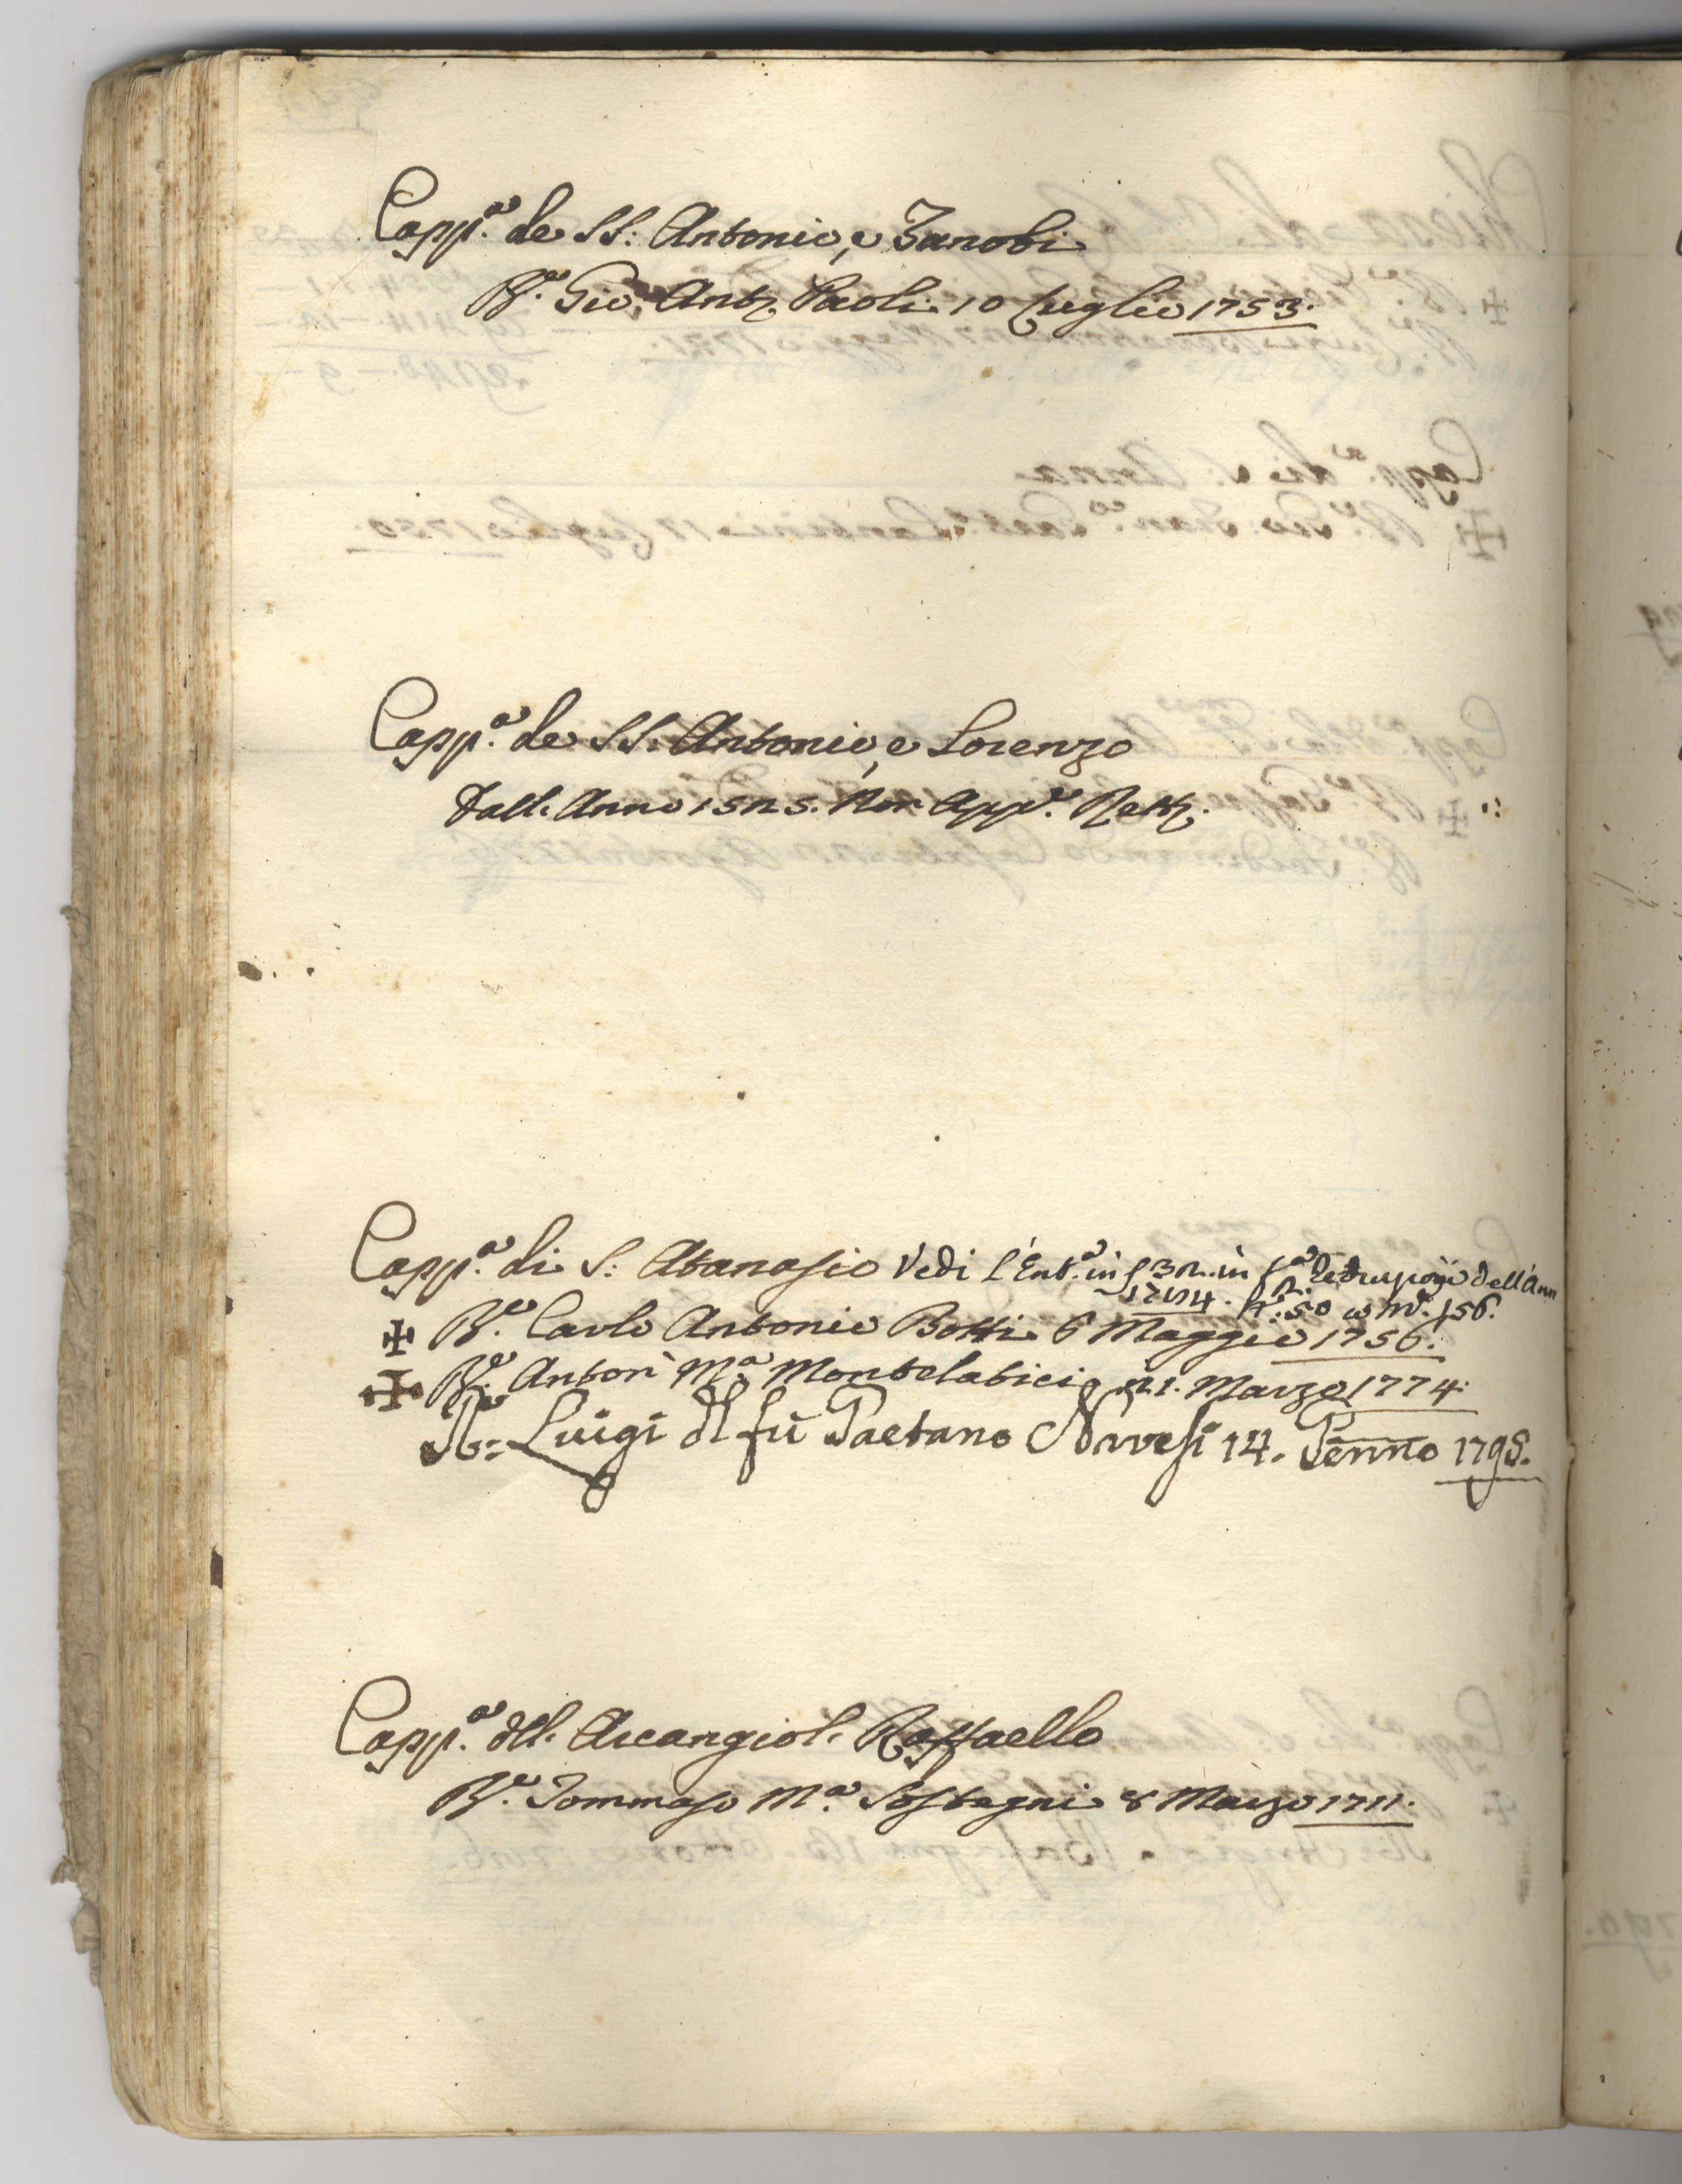 Capp.ª de SS: Antonio, e Zanobi
R.e Gio: Antº Paoli 10 Luglio 1753.
Capp.ª de SS. Antonio, e Lorenzo
Dall. Anno 1525. Non App.e
Capp.ª di S: Atanasio Vedi l'Ent.ª in f 32. in dell'Ann
1724. 50 156.
R.e Carlo Antonio Botti 6 Maggio 1756.
R.e Anton M.ª Montelatici 21. Marzo 1774:
R.e Luigi fù Gaetano 14. Genno 1795.
Capp.ª dell. Arcangiol. Raffaello
R.e Tommaso M.ª Sostegni 8 Marzo 1711.